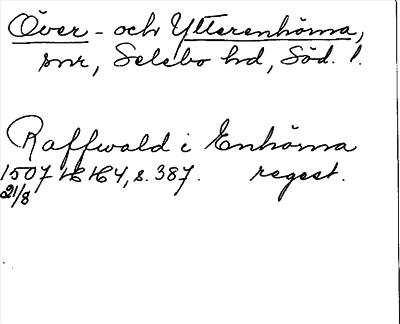 Över- och Ytterenhörna,
snr, Selebo hd, Söd. l.
Raffwald i Enhörna
1507 HH4, s. 387. regest.
21/8